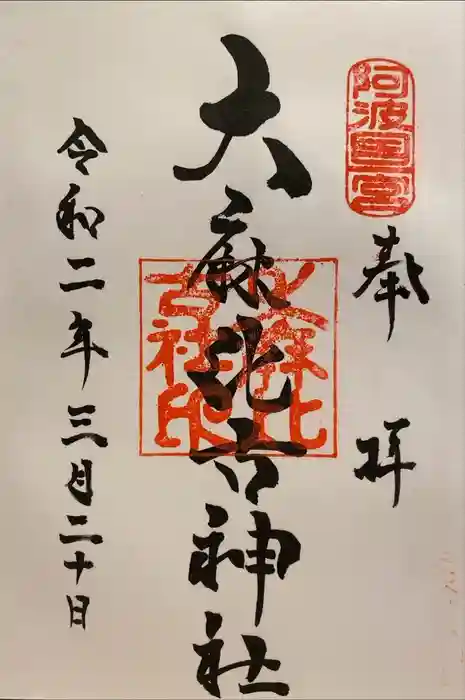 阿波国一宮
奉拝
大麻比古神社
大麻比古社印
令和二年三月二十日